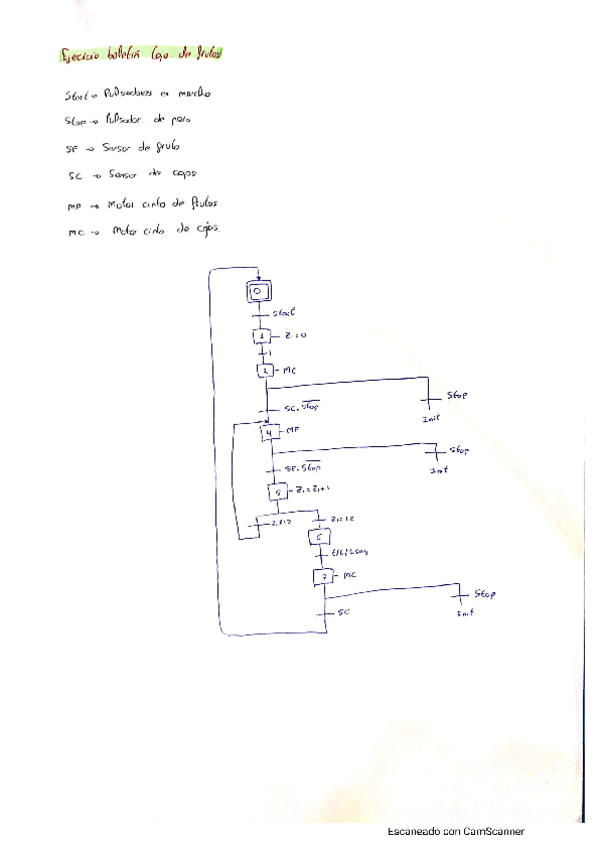 Ejercicio boletín Caja de frutas
Start → Pulsadores en marcha
Stop → Pulsador de paro
SF → Sensor de fruta
SC → Sensor de cajas
MF → Motor cinta de frutas
MC → Motor cinta de cajas.
0
Start
1 Z:=0
1
2 MC
Stop
SC.Stop
Init
4 MF
Stop
SF.Stop
Init
5 Z:=Z+1
Z≠12 Z=12
6
t/6/2seg
7 MC
Stop
SC
Init
Escaneado con CamScanner